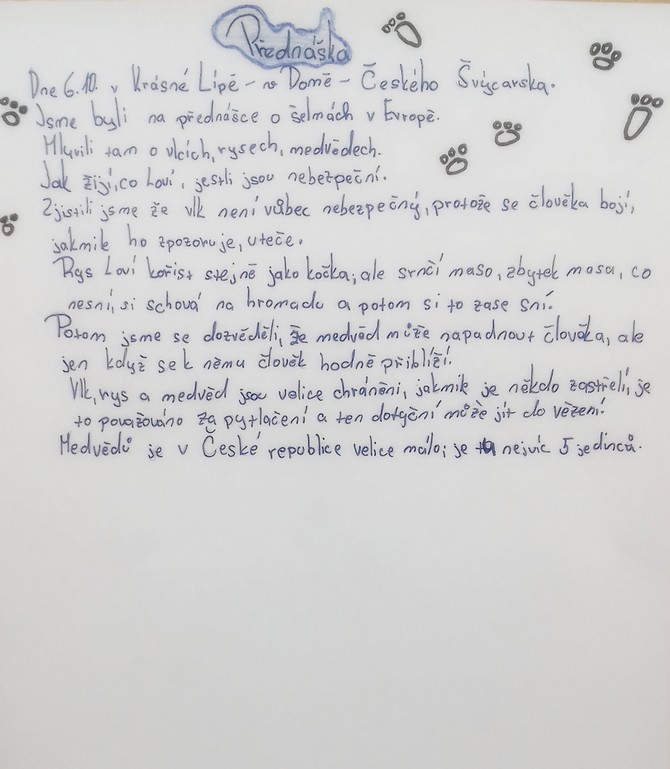 Přednáška
Dne 6.10. v Krásné Lípě - v Domě - Českého Švýcarska.
Jsme byli na přednášce o šelmách v Evropě.
Mluvili tam o vlcích, rysech, medvědech.
Jak žijí, co loví, jestli jsou nebezpeční.
Zjistili jsme že vlk není vůbec nebezpečný, protože se člověka bojí,
jakmik ho zpozoruje, uteče.
Rys loví kořist stejně jako kočka, ale srnčí maso, zbytek masa, co
nesní, si schová na hromadu a potom si to zase sní.
Potom jsme se dozvěděli, že medvěd může napadnout člověka, ale
jen když se k němu člověk hodně přiblíží.
Vlk, rys a medvěd jsou velice chráněni, jakmik je někdo zastřelí, je
to považováno za pytlačení a ten dotyční může jít do vězení.
Medvědů je v České republice velice málo, je nejvíc 5 jedinců.